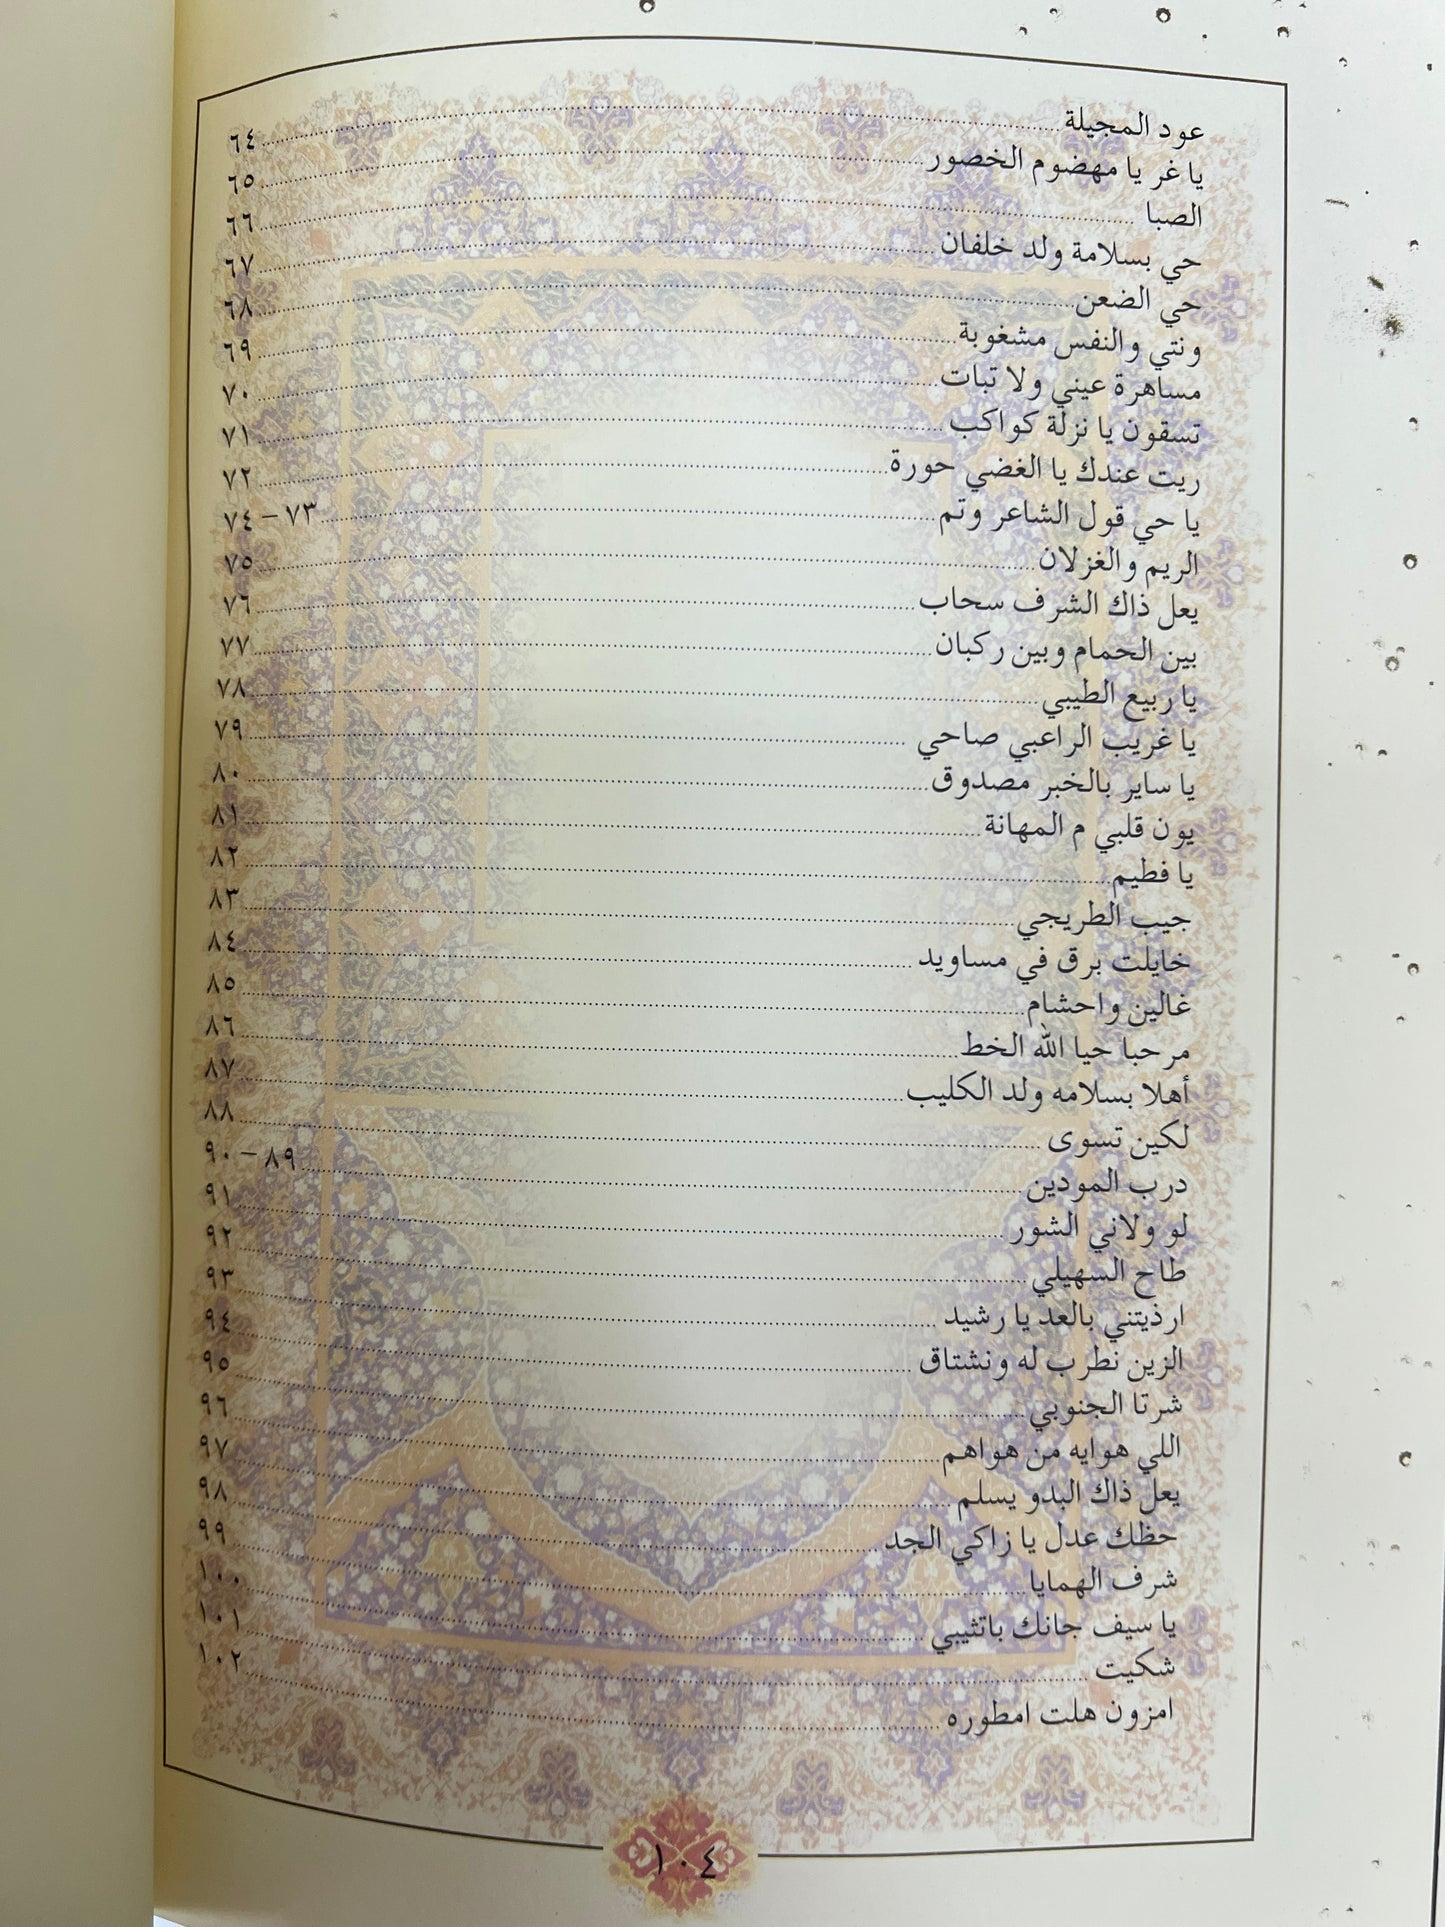 عود المجيلة ٦٤
يا غر يا مهضوم الخصور ٦٥
الصبا ٦٦
حي بسلامة ولد خلفان ٦٧
حي الضعن ٦٨
ونتي والنفس مشغوبة ٦٩
مساهرة عيني ولا تبات ٧٠
تسقون يا نزلة كواكب ٧١
ريت عندك يا الغضي حورة ٧٢
يا حي قول الشاعر وتم ٧٣ - ٧٤
الريم والغزلان ٧٥
يعل ذاك الشرف سحاب ٧٦
بين الحمام وبين ركبان ٧٧
يا ربيع الطيبي ٧٨
يا غريب الراعبي صاحي ٧٩
يا ساير بالخبر مصدوق ٨٠
يون قلبي م المهانة ٨١
يا فطيم ٨٢
جيب الطريجي ٨٣
خايلت برق في مساويد ٨٤
غالين واحشام ٨٥
مرحبا حيا الله الخط ٨٦
أهلا بسلامه ولد الكليب ٨٧
لكين تسوى ٨٨
درب المودين ٨٩ - ٩٠
لو ولاني الشور ٩١
طاح السهيلي ٩٢
ارذيتني بالعد يا رشيد ٩٣
الزين نطرب له ونشتاق ٩٤
شرتا الجنوبي ٩٥
اللي هوايه من هواهم ٩٦
يعل ذاك البدو يسلم ٩٧
حظك عدل يا زاكي الجد ٩٨
شرف الهمايا ٩٩
يا سيف جانك باتثيبي ١٠٠
شكيت ١٠١
امزون هلت امطوره ١٠٢
١٠٤